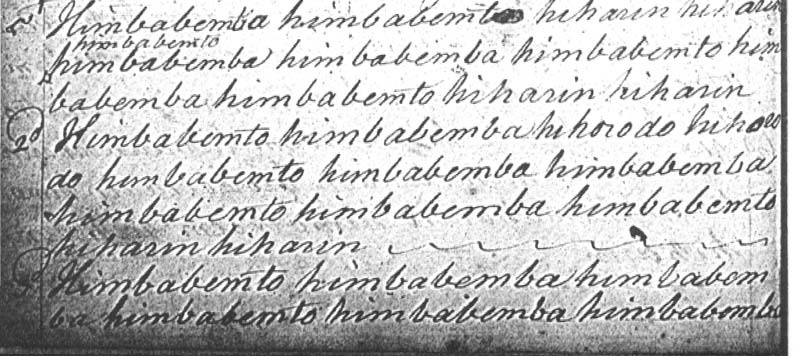 Himbabemba himbabemto hiharin hiharin
himbabemto
himbabemba himbabemba himbabemto him
babemba himbabemto hiharin hiharin
2d Himbabemto himbabemba hihorodo hihoro
do himbabemto himbabemba himbabemba
himbabemto himbabemba himbabemto
hiharin hiharin
Himbabemto himbabemba himbabem
ba himbabemto himbabemba himbabemba